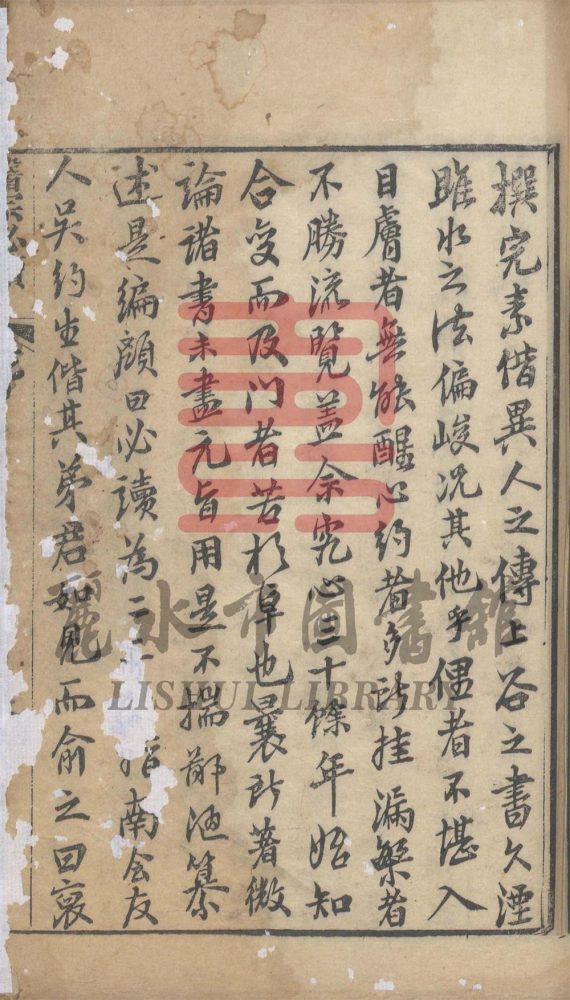 撰完素偕異人之傳上谷之書久湮
睢水之法偏峻况其他乎偶者不堪入
目膚者無能醒心約者多所挂漏繁者
不勝流覽盖余究心三十餘年始知
合变而及門者苦於卓也曩所著微
論諸書未盡元旨用是不揣鄙陋纂
述是編顔曰必讀為二三指南會友
人吴約生偕其弟君如見而俞之曰裒
麗水市圖書館
LISHUI LIBRARY